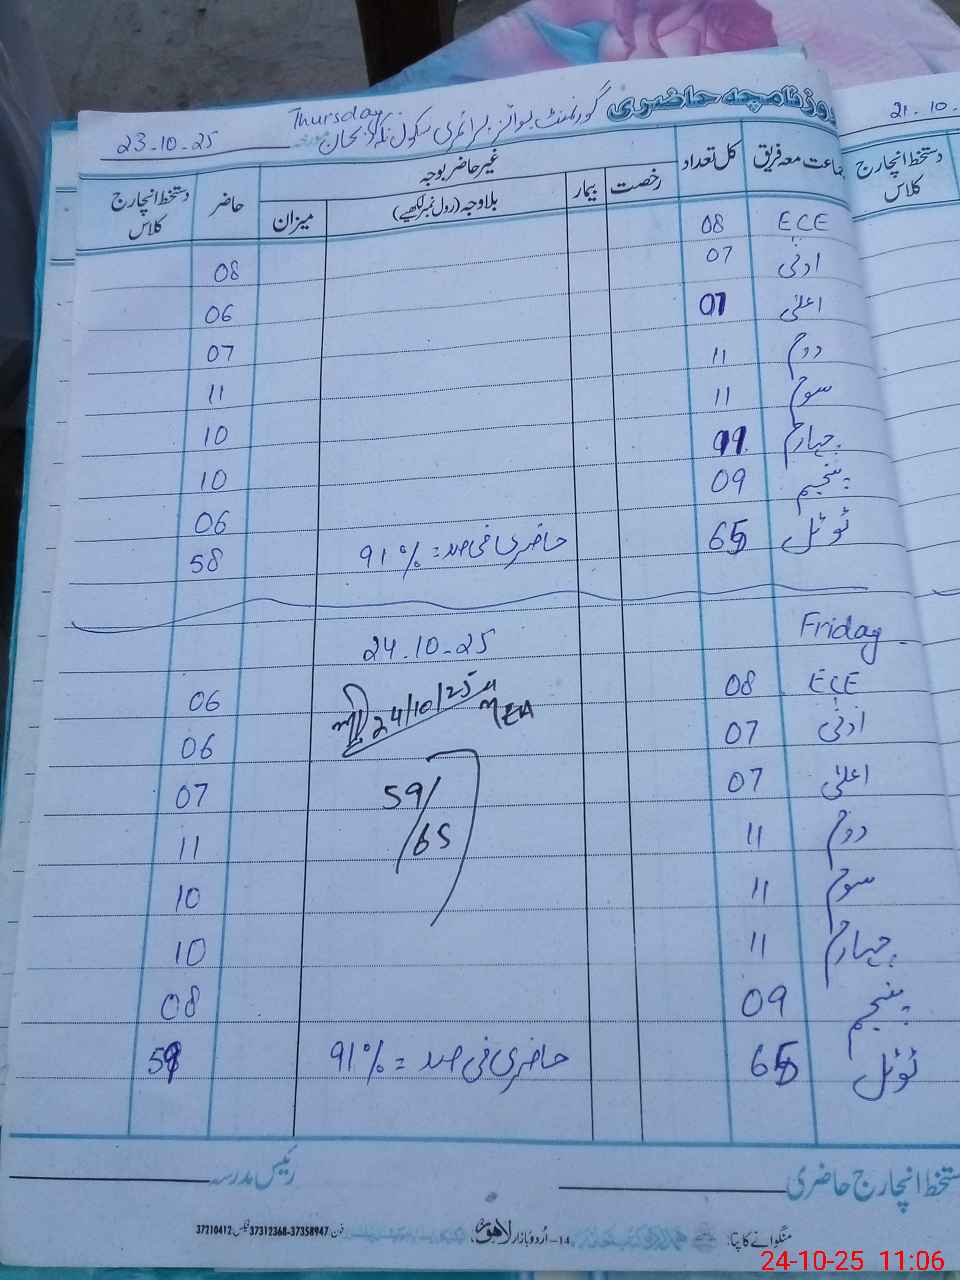 روزنامچہ حاضری گورنمنٹ بوائز پرائمری سکول Thursday 23-10-25
جماعت معہ فریق کل تعداد رخصت بیمار غیر حاضر بوجہ حاضر دستخط انچارج کلاس
بلاوجہ (رول نمبر لکھیے) میزان
ECE 08 08
ادنیٰ 07 06
اعلیٰ 07 07
دوم 11 11
سوم 11 10
چہارم 11 10
پنجم 09 06
ٹوٹل 65 حاضری فی صد = 91% 58
Friday 24-10-25
ECE 08 06
24/10/25
ادنیٰ 07 06
اعلیٰ 07 07
59/65
دوم 11 11
سوم 11 10
چہارم 11 10
پنجم 09 08
ٹوٹل 65 حاضری فی صد = 91% 59
دستخط انچارج حاضری رئیس مدرسہ
منگوانے کا پتا: 14-اُردو بازار لاہور فون 37358947-37312368 فیکس 37210412
21.10.
دستخط انچارج
کلاس
24-10-25 11:06